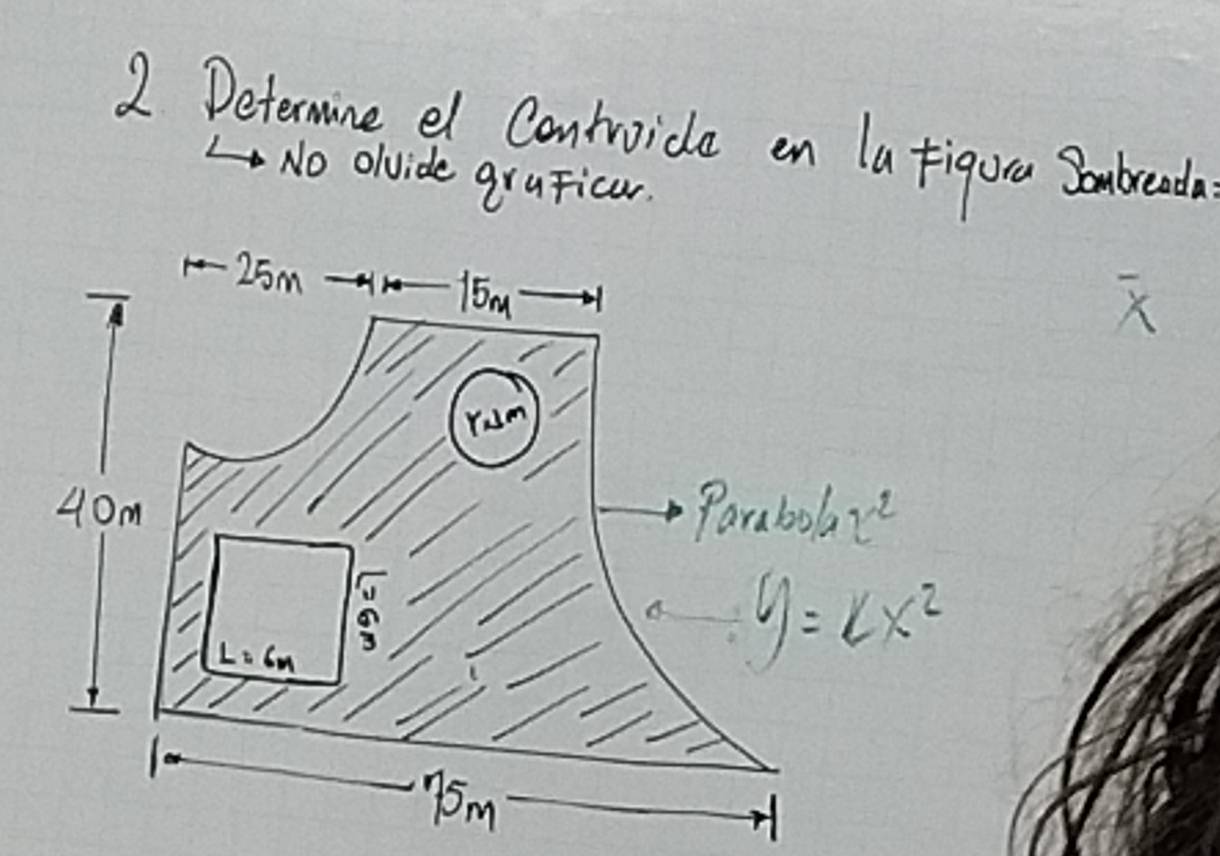 2 Determine el Centroide en la Figura Sombreada:
↳ No olvide graficar.
25m 15m
x̄
r=3m
40m
Parábola x²
L=6m
y = kx²
L=6m
75m